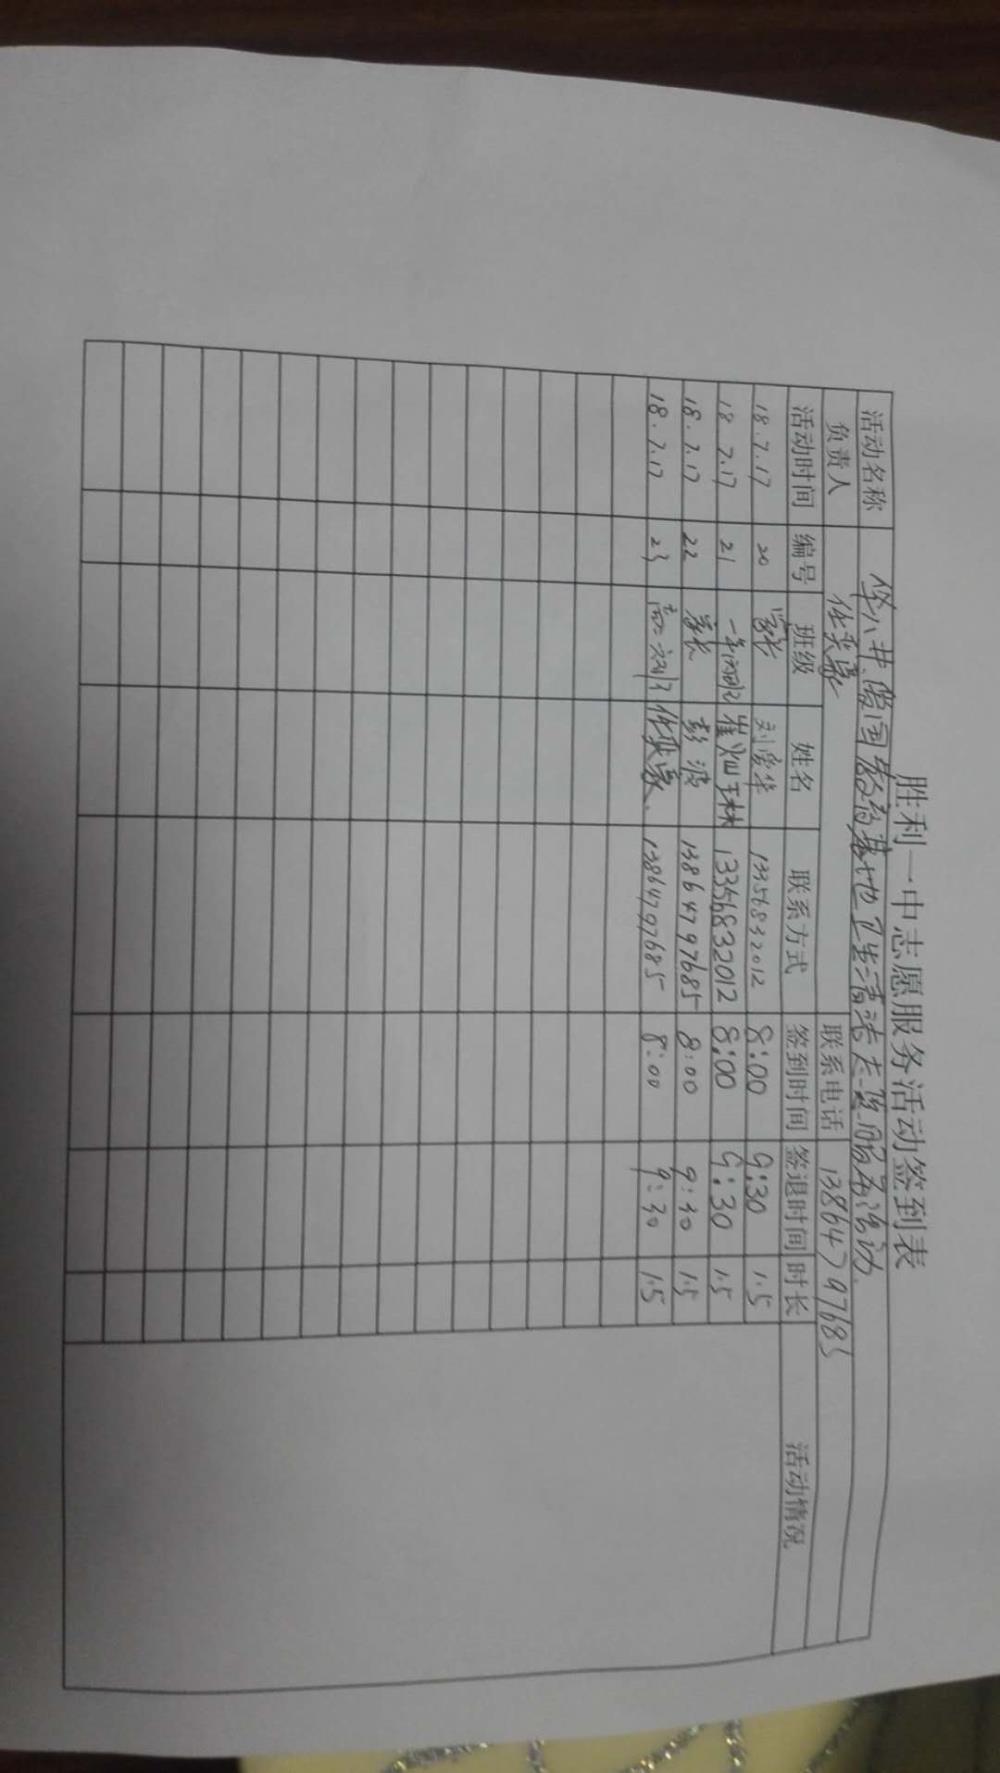 胜利一中志愿服务活动签到表
活动名称 华八井爱国教育基地卫生清洁志愿服务活动
负责人 任奕豪 联系电话 13864797685
活动时间 编号 班级 姓名 联系方式 签到时间 签退时间 时长 活动情况
18.7.17 20 家长 刘常华 13356832012 8:00 9:30 1.5
18.7.17 21 崔灿 13356832012 8:00 9:30 1.5
18.7.17 22 家长 彭波 13864797685 8:00 9:30 1.5
18.7.17 23 任奕豪 13864797685 8:00 9:30 1.5